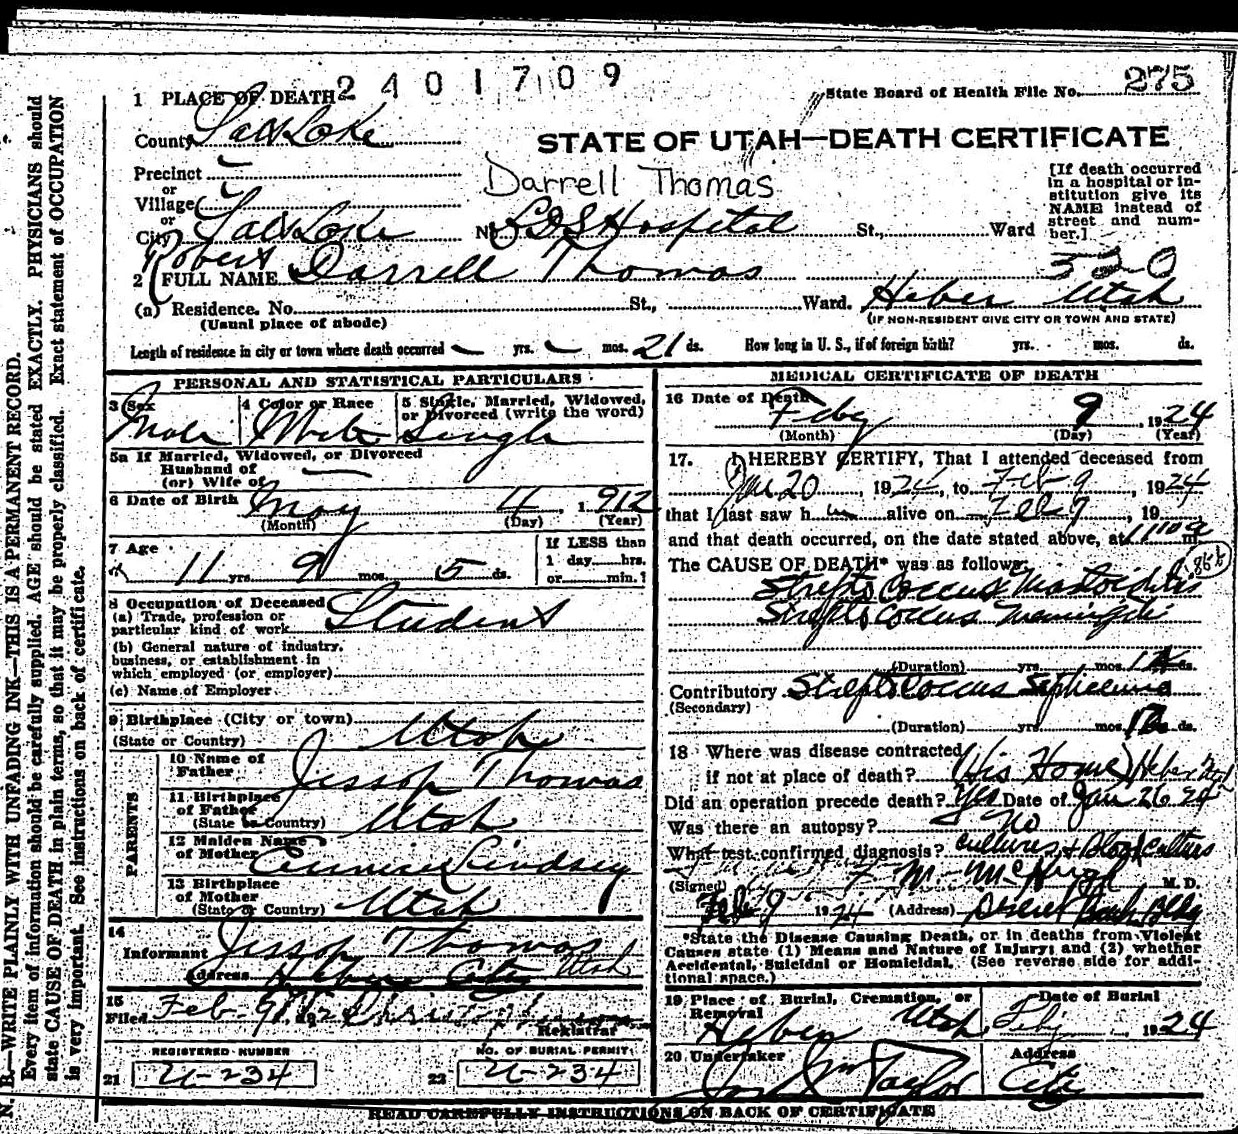 2401709
1 PLACE OF DEATH
State Board of Health File No. 275
County Salt Lake
STATE OF UTAH—DEATH CERTIFICATE
Precinct
or
Village
or
City Salt Lake
Darrell Thomas
No. L.D.S Hospital St., Ward
[If death occurred in a hospital or institution give its NAME instead of street and number.]
Robert
2 FULL NAME Darrell Thomas
520
(a) Residence. No. St., Ward. Heber Utah
(Usual place of abode)
(IF NON-RESIDENT GIVE CITY OR TOWN AND STATE)
Length of residence in city or town where death occurred — yrs. — mos. 21 ds. How long in U. S., if of foreign birth? yrs. mos. ds.
PERSONAL AND STATISTICAL PARTICULARS
3 Sex
Male
4 Color or Race
White
5 Single, Married, Widowed, or Divorced (write the word)
Single
5a If Married, Widowed, or Divorced
Husband of
(or) Wife of
6 Date of Birth May 4, 1912
(Month) (Day) (Year)
7 Age
11 yrs. 9 mos. 5 ds.
If LESS than
1 day hrs.
or min.?
8 Occupation of Deceased
(a) Trade, profession or particular kind of work Student
(b) General nature of industry, business, or establishment in which employed (or employer)
(c) Name of Employer
9 Birthplace (City or town)
(State or Country) Utah
PARENTS
10 Name of Father Jessop Thomas
11 Birthplace of Father (State or Country) Utah
12 Maiden Name of Mother Lindsey
13 Birthplace of Mother (State or Country) Utah
14
Informant Jessop Thomas
Address Heber City Utah
15
Filed Feb-9
Registrar
REGISTERED NUMBER
21 U-234
NO. OF BURIAL PERMIT
22 U-234
MEDICAL CERTIFICATE OF DEATH
16 Date of Death
Feby 9, 1924
(Month) (Day) (Year)
17. I HEREBY CERTIFY, That I attended deceased from
Jan 20, 1924, to Feb 9, 1924
that I last saw h im alive on Feb 9, 19
and that death occurred, on the date stated above, at 1110 a m.
The CAUSE OF DEATH* was as follows:
86b
Streptococcus Mastoiditis
Streptococcus Meningitis
(Duration) yrs. mos. ds.
Contributory Streptococcus Septicemia
(Secondary)
(Duration) yrs. mos. ds.
18 Where was disease contracted
if not at place of death? (His Home) Heber Utah
Did an operation precede death? Yes Date of Jan 26 24
Was there an autopsy? No
What test confirmed diagnosis? Cultures + Blood Cultures
(Signed) M. McHugh M. D.
Feb 9 1924 (Address) Deseret Bank Bldg
*State the Disease Causing Death, or in deaths from Violent Causes state (1) Means and Nature of Injury; and (2) whether Accidental, Suicidal or Homicidal. (See reverse side for additional space.)
19 Place of Burial, Cremation, or Removal
Heber Utah
Date of Burial
Feby 1924
20 Undertaker
Jos Wm Taylor
Address
City
READ CAREFULLY INSTRUCTIONS ON BACK OF CERTIFICATE
N. B.—WRITE PLAINLY WITH UNFADING INK—THIS IS A PERMANENT RECORD.
Every item of information should be carefully supplied. AGE should be stated EXACTLY. PHYSICIANS should
state CAUSE OF DEATH in plain terms, so that it may be properly classified. Exact statement of OCCUPATION
is very important. See instructions on back of certificate.